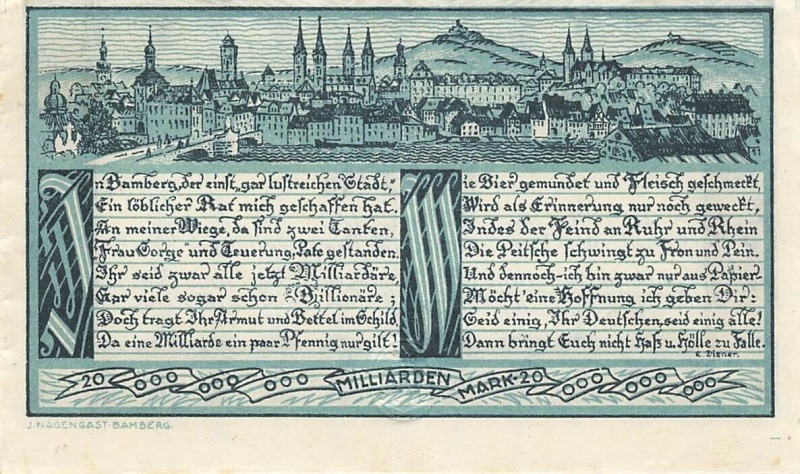 In Bamberg, der einst, gar lustreichen Stadt,
Ein löblicher Rat mich geschaffen hat.
An meiner Wiege, da sind zwei Tanten,
"Frau Sorge" und Teuerung, Pate gestanden.
Ihr seid zwar alle jetzt Milliardäre,
Gar viele sogar schon Billionäre;
Doch tragt Ihr Armut und Bettel im Schild,
Da eine Milliarde ein paar Pfennig nur gilt!
Wie Bier gemundet und Fleisch geschmeckt,
Wird als Erinnerung nur noch geweckt,
Indes der Feind an Ruhr und Rhein
Die Peitsche schwingt zu Fron und Pein.
Und dennoch - ich bin zwar nur aus Papier -
Möcht' eine Hoffnung ich geben Dir:
Seid einig, Ihr Deutschen, seid einig alle!
Dann bringt Euch nicht Haß u. Hölle zu Falle.
C. Diener.
20 000 000 000 MILLIARDEN MARK·20 000 000 000
J. NAGENGAST·BAMBERG.